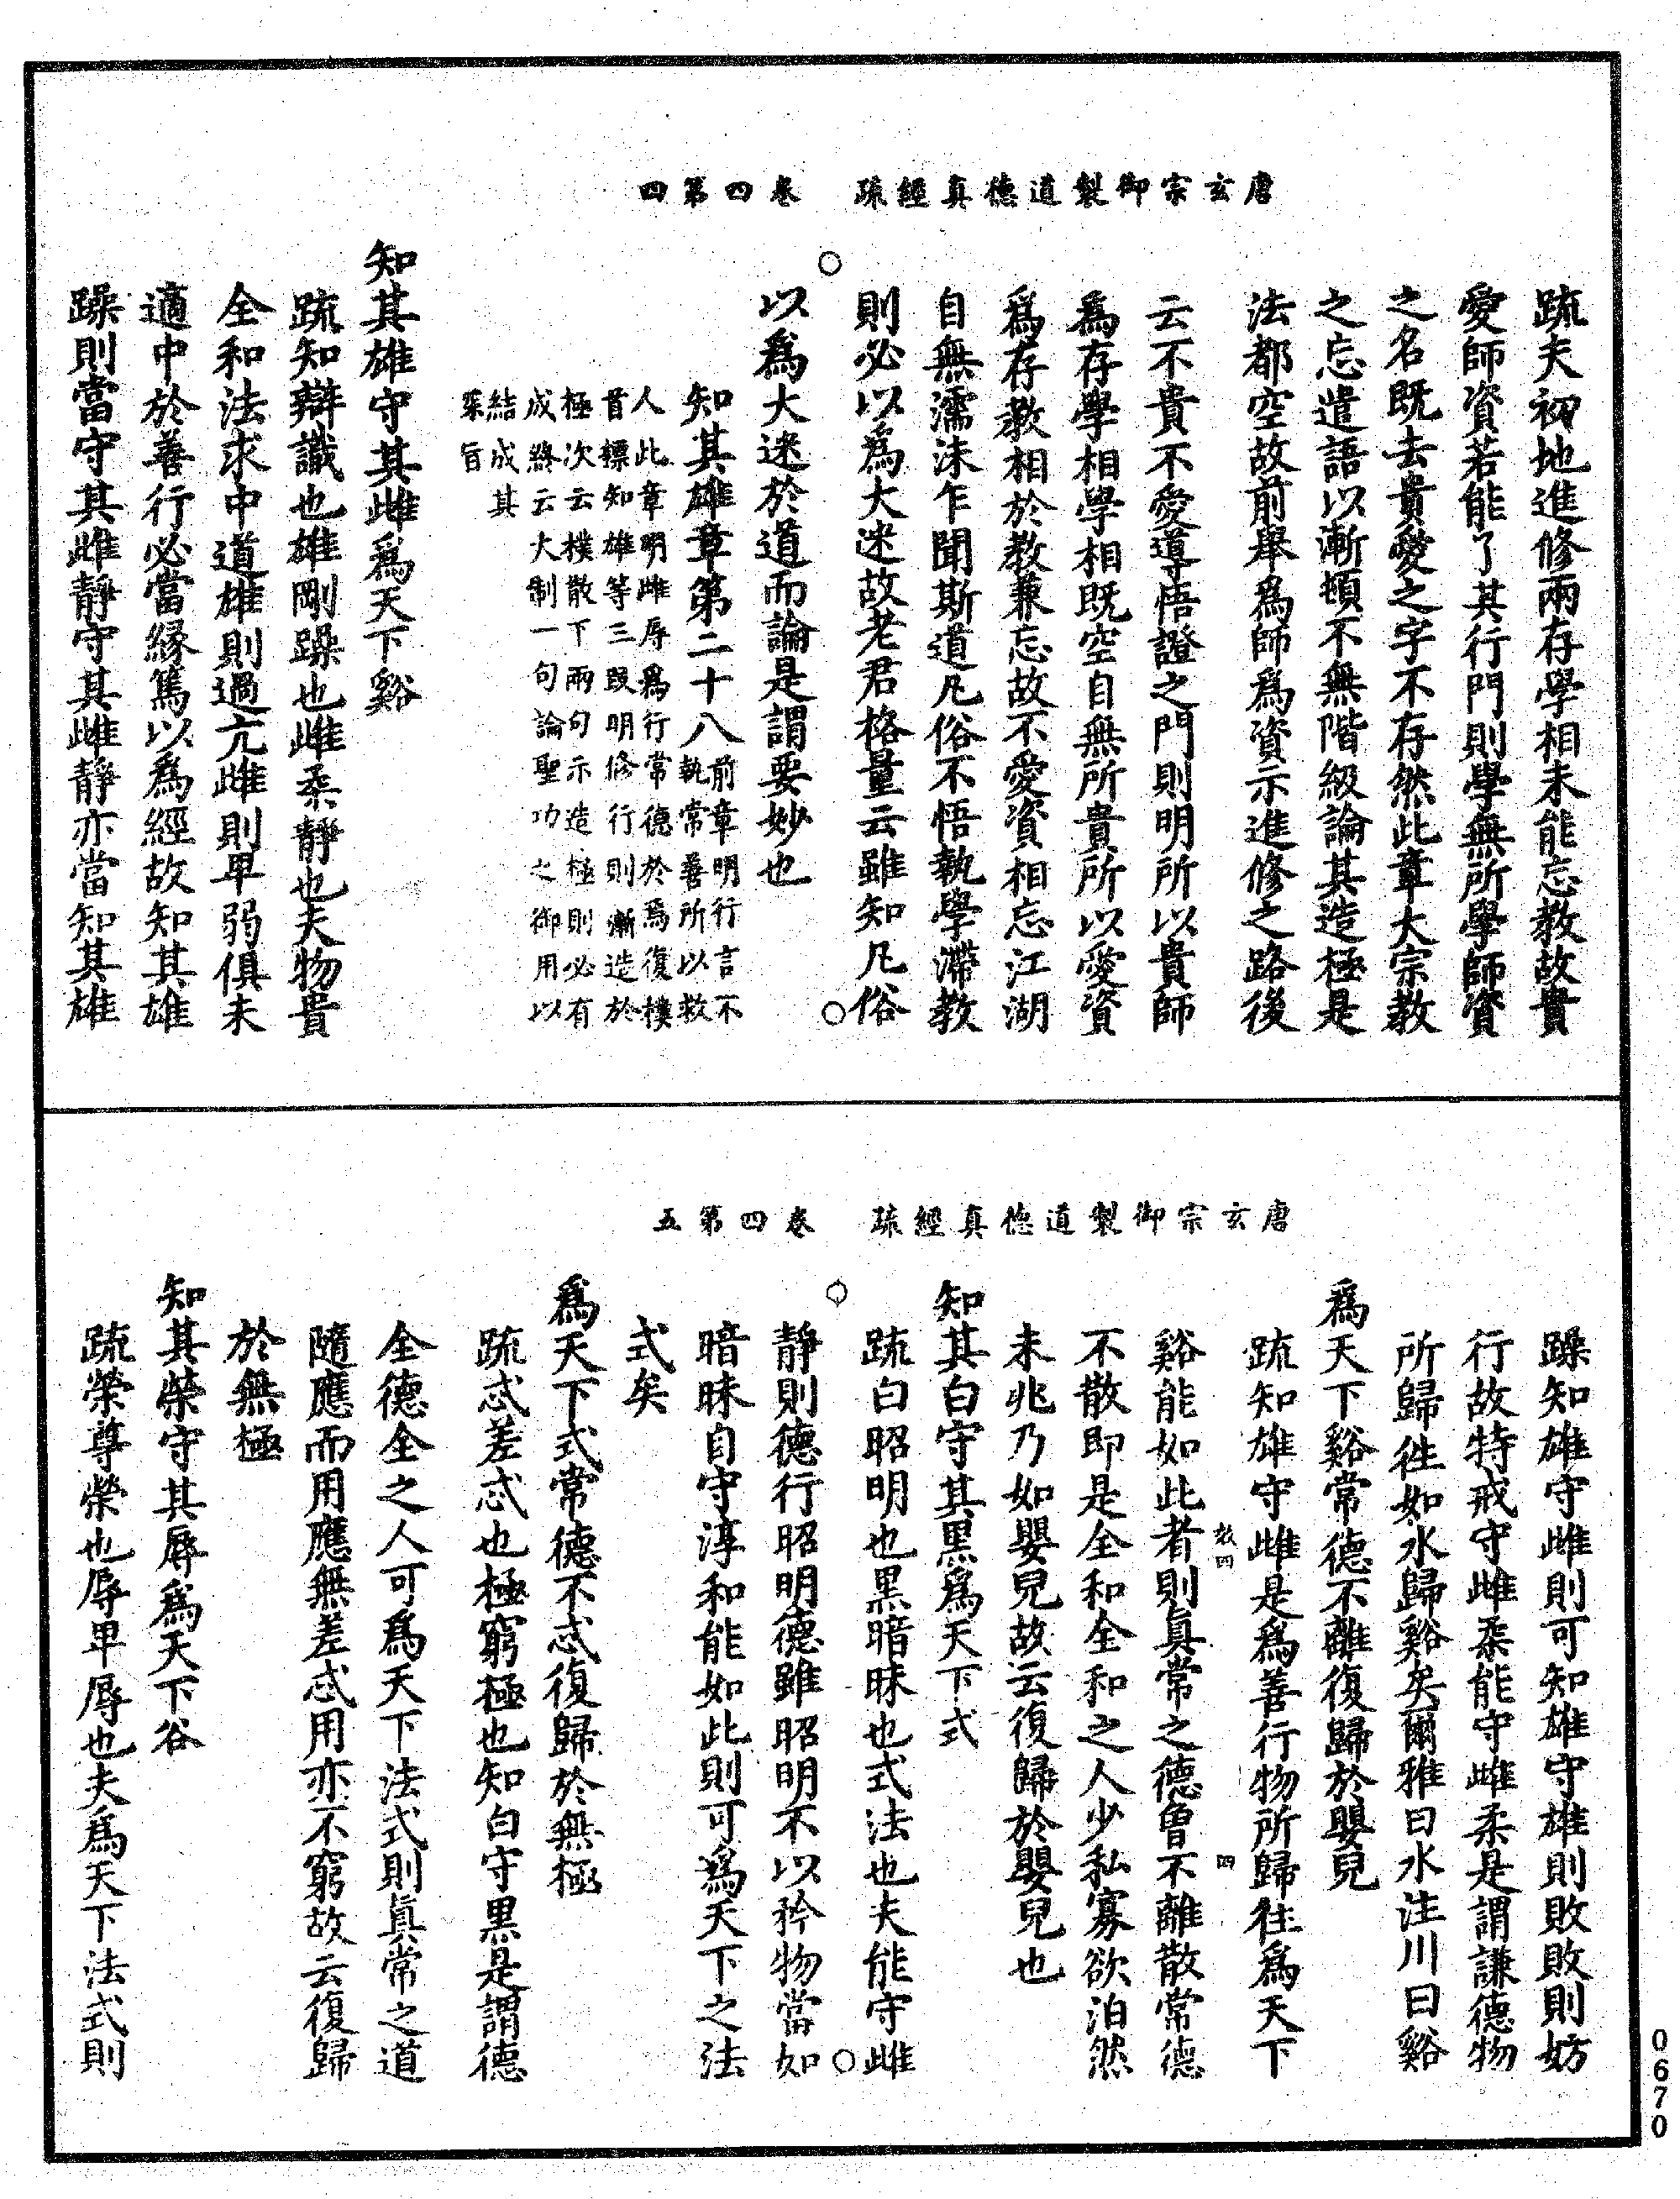 唐玄宗御製道德真經疏　卷四第四
疏夫初地進修兩存學相未能忘教故貴
愛師資若能了其行門則學無所學師資
之名既去貴愛之字不存然此章大宗教
之忘遣語以漸頓不無階級論其造極是
法都空故前舉爲師爲資示進修之路後
云不貴不愛導悟證之門則明所以貴師
爲存學相學相既空自無所貴所以愛資
爲存教相於教兼忘故不愛資相忘江湖
自無濡沫乍聞斯道凡俗不悟執學滯教
則必以爲大迷故老君格量云雖知凡俗
以爲大迷於道而論是謂要妙也
知其雄章第二十八前章明行言不執常善所以救
人此章明雌辱爲行常德於焉復樸
首標知雄等三既明修行則漸造於
極次云樸散下兩句示造極則必有
成終云大制一句論聖功之御用以
結成其
深旨
知其雄守其雌爲天下谿
疏知辯識也雄剛躁也雌柔靜也夫物貴
全和法求中道雄則過亢雌則卑弱俱未
適中於善行必當緣篤以爲經故知其雄
躁則當守其雌靜守其雌靜亦當知其雄
唐玄宗御製道德真經疏　卷四第五
躁知雄守雌則可知雄守雄則敗敗則妨
行故特戒守雌柔能守雌柔是謂謙德物
所歸往如水歸谿矣爾雅曰水注川曰谿
爲天下谿常德不離復歸於嬰兒
疏知雄守雌是爲善行物所歸往爲天下
敢四　四
谿能如此者則真常之德曾不離散常德
不散即是全和全和之人少私寡欲泊然
未兆乃如嬰兒故云復歸於嬰兒也
知其白守其黑爲天下式
疏白昭明也黑暗昧也式法也夫能守雌
靜則德行昭明德雖昭明不以矜物當如
暗昧自守淳和能如此則可爲天下之法
式矣
爲天下式常德不忒復歸於無極
疏忒差忒也極窮極也知白守黑是謂德
全德全之人可爲天下法式則真常之道
隨應而用應無差忒用亦不窮故云復歸
於無極
知其榮守其辱爲天下谷
疏榮尊榮也辱卑辱也夫爲天下法式則
0670